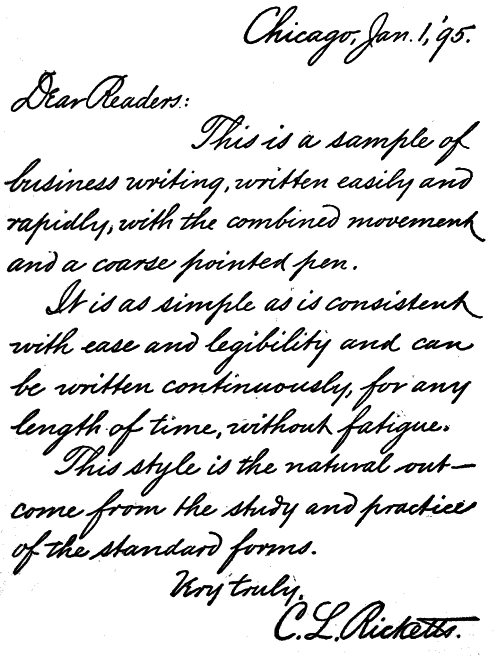 Chicago, Jan. 1, '95.
Dear Readers:
This is a sample of
business writing, written easily and
rapidly, with the combined movement
and a coarse pointed pen.
It is as simple as is consistent
with ease and legibility and can
be written continuously, for any
length of time, without fatigue.
This style is the natural out—
come from the study and practice
of the standard forms.
Very truly,
C. L. Ricketts.